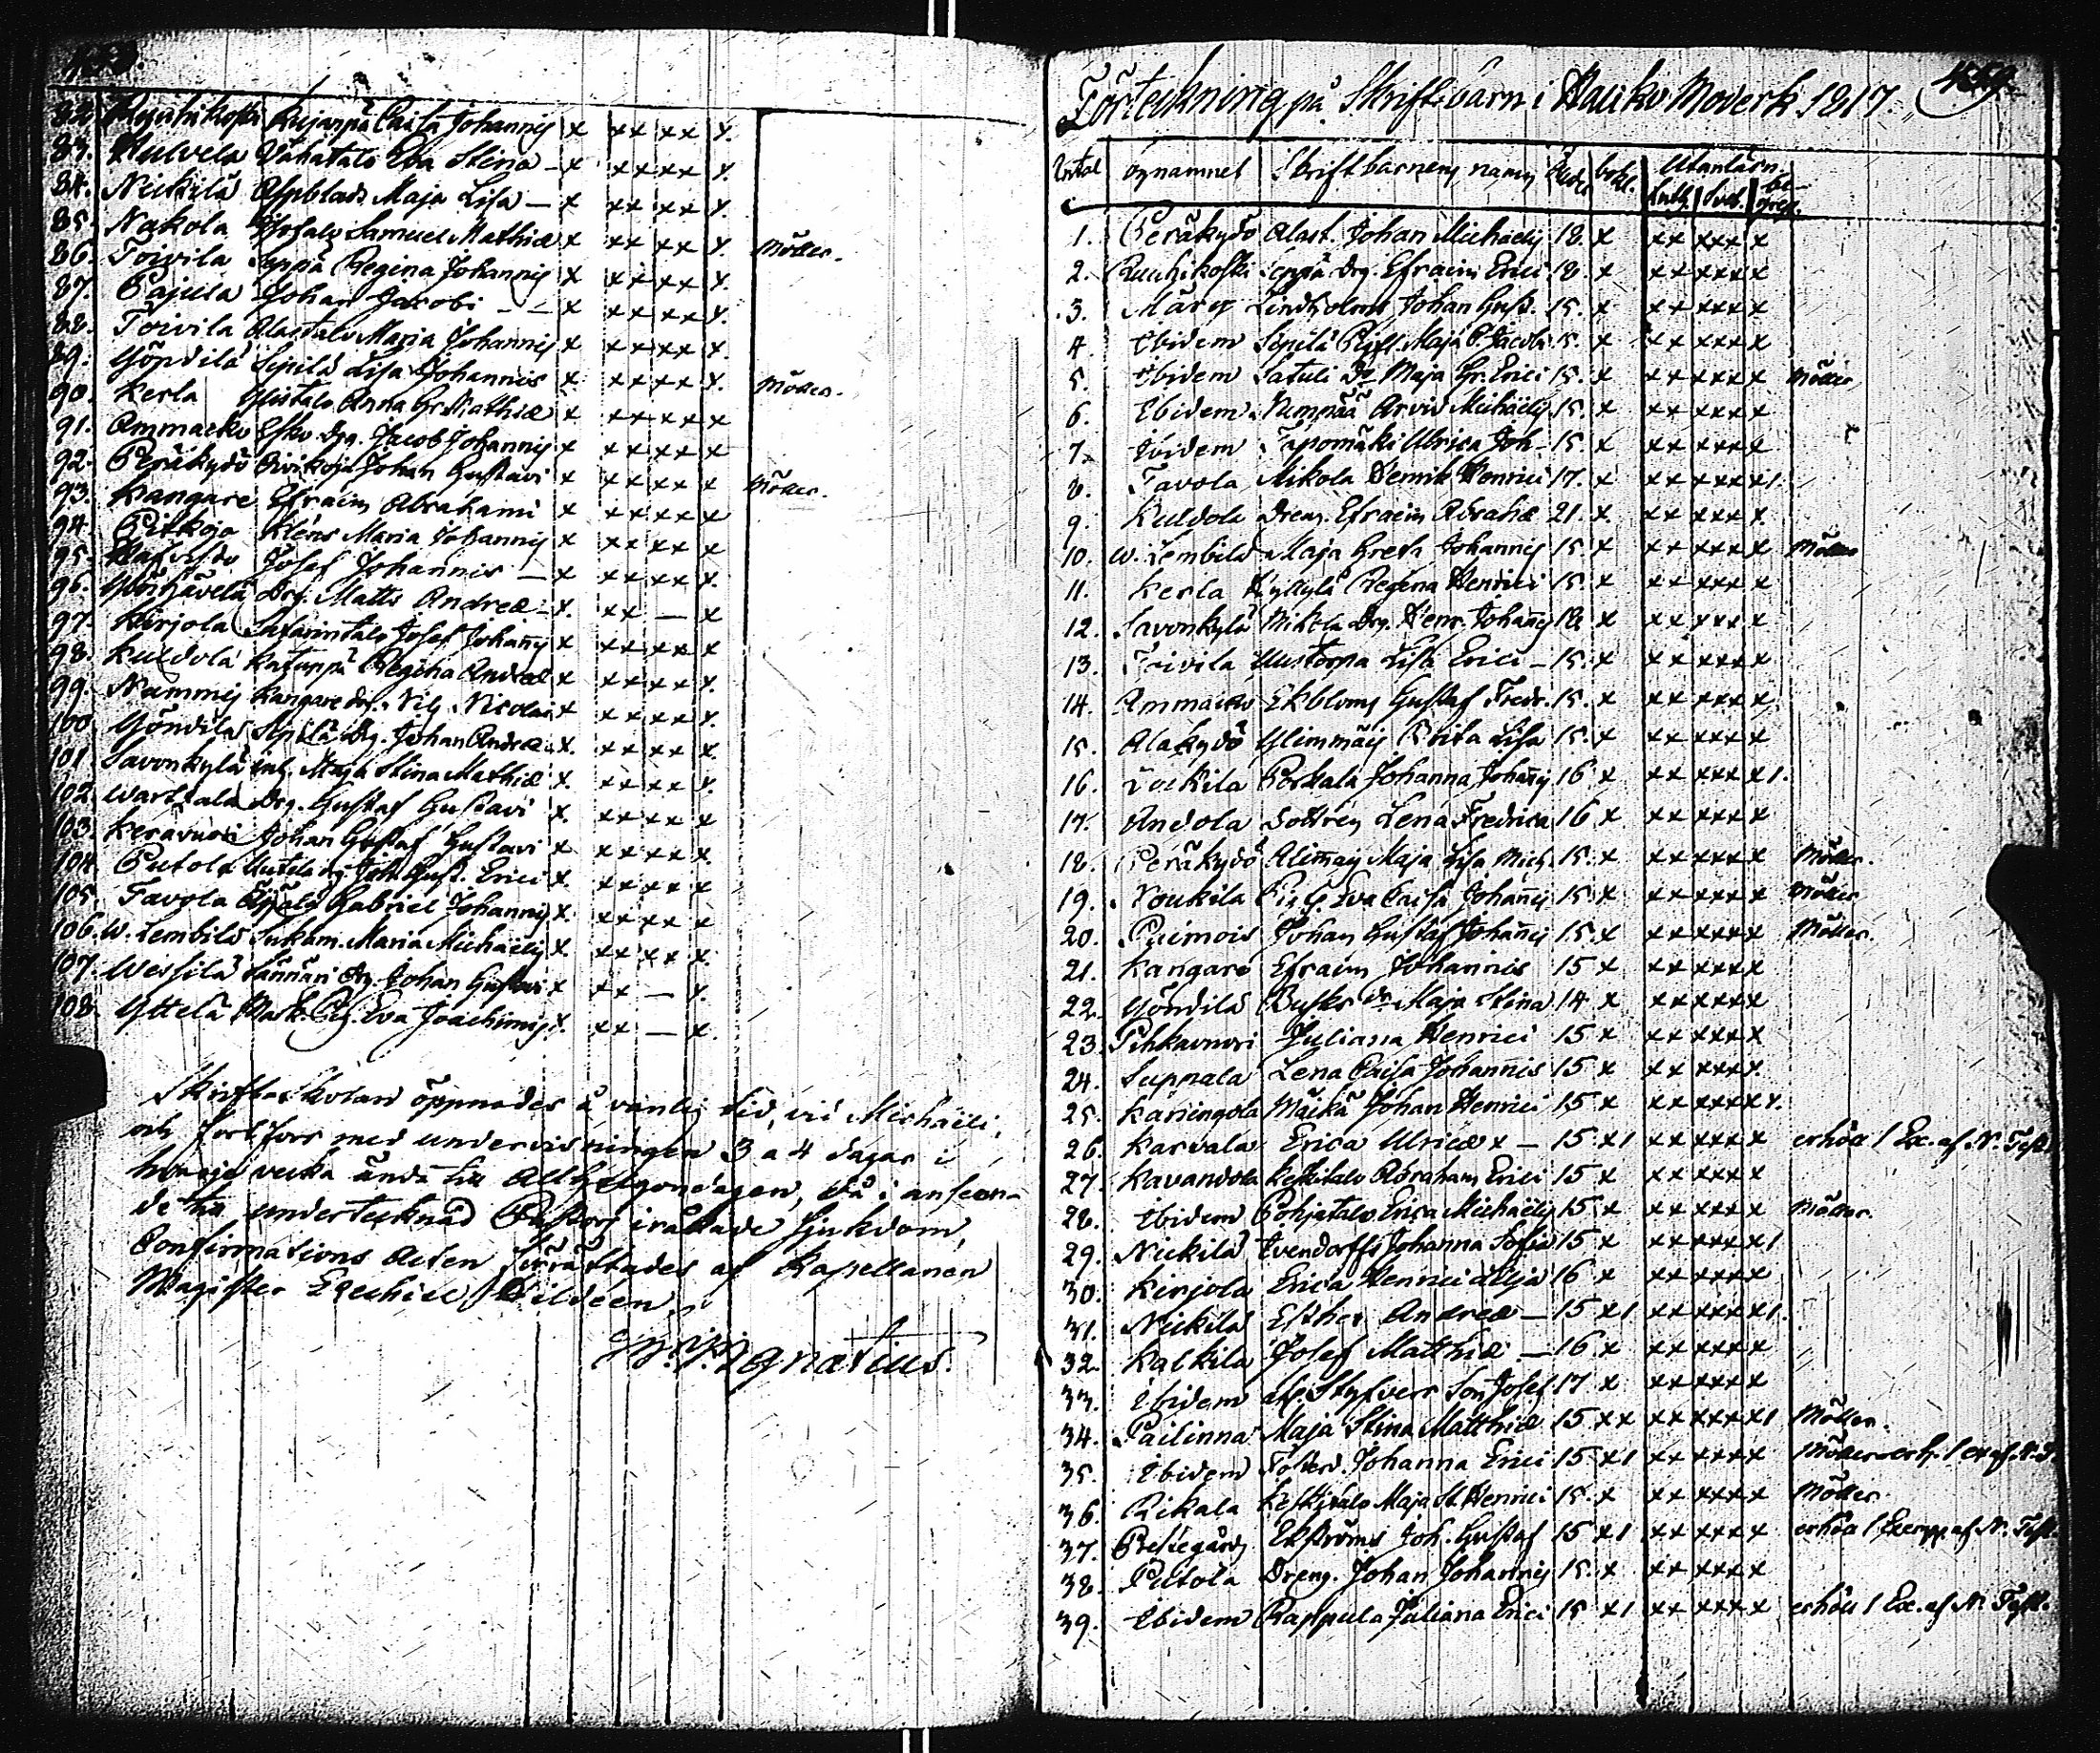 82. Ruuhikoski Kujanpä Caisa Johannis x xx xx x
83. Kulvela Vähätalo Eva Stina - x xx xx x
84. Nuckilä Maja Lisa - x xx xx x
85. Nokola Samuel Mathiæ x xx xx x Möller.
86. Toivila Seppä Regina Johannis x xx xx x
87. Pajula Johan Jacobi - - x xx xx x
88. Toivila Alastalo Maria Johannis x xx xx x
89. Yöndilä Sipilä Lisa Johannis x xx xx x Möller.
90. Kerla Ylistalo Anna Gr. Mathiæ x xx xx x
91. Ammaeko Esko drg. Jacob Johannis x xx xx x
92. Peräkydö Johan Gustavi x xx xx x Möller.
93. Kangare Efraim Abrahami x xx xx x
94. Pitkojo Klens Maria Johannis x xx xx x
95. Josef Johannis - x xx xx x
96. Drg. Matts Andreæ - x xx - x
97. Kirjola Josef Johañis x xx xx x
98. Kuldola Regina Andreæ x xx xx x
99. Nummis Kangare drg. Nils Nicolai x xx xx x
100 Yöndilä Sipilä drg. Johan Andreæ x xx xx x
101 Savonkylä Maja Stina Mathiæ x xx xx x
102 Wartsala Drg. Gustaf Gustavi x xx xx x
103. Keravuori Johan Gustaf Gustavi x xx xx x
104 Putola Uutela dg. Joh. Gust. Erici x xx xx x
105. Tavola Äijälä Gabriel Johannis x xx xx x
106. W. Lembilä Maria Michaëlis x xx xx x
107. Wessilä Sännäri Dg. Johan Gustavi x xx - x
108. Yttelä Mask. Pig. Eva Joachimi x xx - x
Skriftskolan öppnades å vanlig tid, vid Michaëli,
och fortfors med undervisningen 3 a 4 dagar i
hvarje vecka ända till Allhelgondagen, då i anseen-
de till undertecknad Pastors iråkade sjukdom,
Confirmations Acten förrättades af Kapellanen
Magister Ezechiel Hildeen.
Ignatius.
459
Förteckning på Skriftebarn i Nauko Moderk. 1817.
Antal Bynamnet Skriftbarnens namn Ålder bokl. Utanlärn.
Luth. Sveb. be-
grep.
1. Peräkydö Alast. Johan Michaelis 18. x xx xxx x
2. Ruuhikoski Seppä drg. Efraim Erici 18. x xx xxx x
3. Märis Lindholms Johan Gust. 15. x xx xxx x
4. Ibidem Sipilä Maja C. Jacobi 15. x xx xxx x
5. Ibidem Satuli Do Maja Gr. Erici 15. x xx xxx x Möller
6. Ibidem Numpää Arvid Michaëlis 15. x xx xxx x
7. Ibidem Tapomäki Ulrica Joh. 15 x xx xxx x
8. Tavola Mikola Henrik Henrici 17. x xx xxx x1
9. Kuldola Dreng. Efraim Abrahæ 21. x xx xxx x
10. W. Lembilä Maja Greta Johannis 15 x xx xxx x Möller
11. Kerla Kyllylä Regina Henrici 15. x xx xxx x
12. Savonkylä Mikola Drg. Henr. Johañis 18 x xx xxx x
13. Toivila Uustorpa Lisa Erici - 15. x xx xxx x
14. Ammaeko Ekbloms Gustaf Fredr. 15. x xx xxx x
15. Alakydö Glimmäis Brita Lisa 15. x xx xxx x
16. Luckila Porkala Johanna Johañis 16 x xx xxx x1.
17. Andola Södtrén Lena Fredrica 16 x xx xxx x
18. Peräkydö Maja Lisa Mich. 15. x xx xxx x Möller.
19. Noukila Eva Caisa Johañis 15 x xx xxx x Möller
20. Primois Johan Gustaf Johañis 15. x xx xxx x Möller.
21. Kangare Efraim Johannis 15 x xx xxx x
22. Yöndilä Busks Dr Maja Stina 14 x xx xxx x
23. Pihkavuori Juliana Henrici 15 x xx xxx x
24. Suppala Lena Caisa Johannis 15 x xx xxx x
25. Kariengola Mäikä Johan Henrici 15 x xx xxx x
26. Karvala Erica Ulricæ x - 15 x1 xx xxx x erhöll 1 Ex. af N. Test.
27. Kavandola Keskitalo Abraham Erici 15 x xx xxx x
28. Ibidem Pohjatalo Erica Michaëlis 15 x xx xxx x Möller.
29. Nuckilä Evendorffs Johanna Sofia 15 x xx xxx x1
30. Kirjola Erica Henrici 16 x xx xxx x
31. Nuckilä Esther Andreæ - 15 x1 xx xxx x1.
32. Kalkila Josef Matthiæ - 16 x xx xxx x
33. Ibidem afl. Styfvers Son Josef 17 x xx xxx x
34. Pailinna Maja Stina Matthiæ 15 xx xx xxx x1 Möller.
35. Ibidem Fosterd. Johanna Erici 15 x1 xx xxx x Möller erh. 1 ex af. N. T.
36. Rikala Keskitalo Maja St. Henrici 15. x xx xxx x Möller.
37. Prestegårds Ekströms Joh. Gustaf 15 x1 xx xxx x erhöll 1 Exempl af N. Test.
38. Putola Dreng. Johan Johannis 15. x xx xxx x
39. Ibidem Rappula Juliana Erici 15 x1 xx xxx x erhöll 1 Ex. af N. Test.